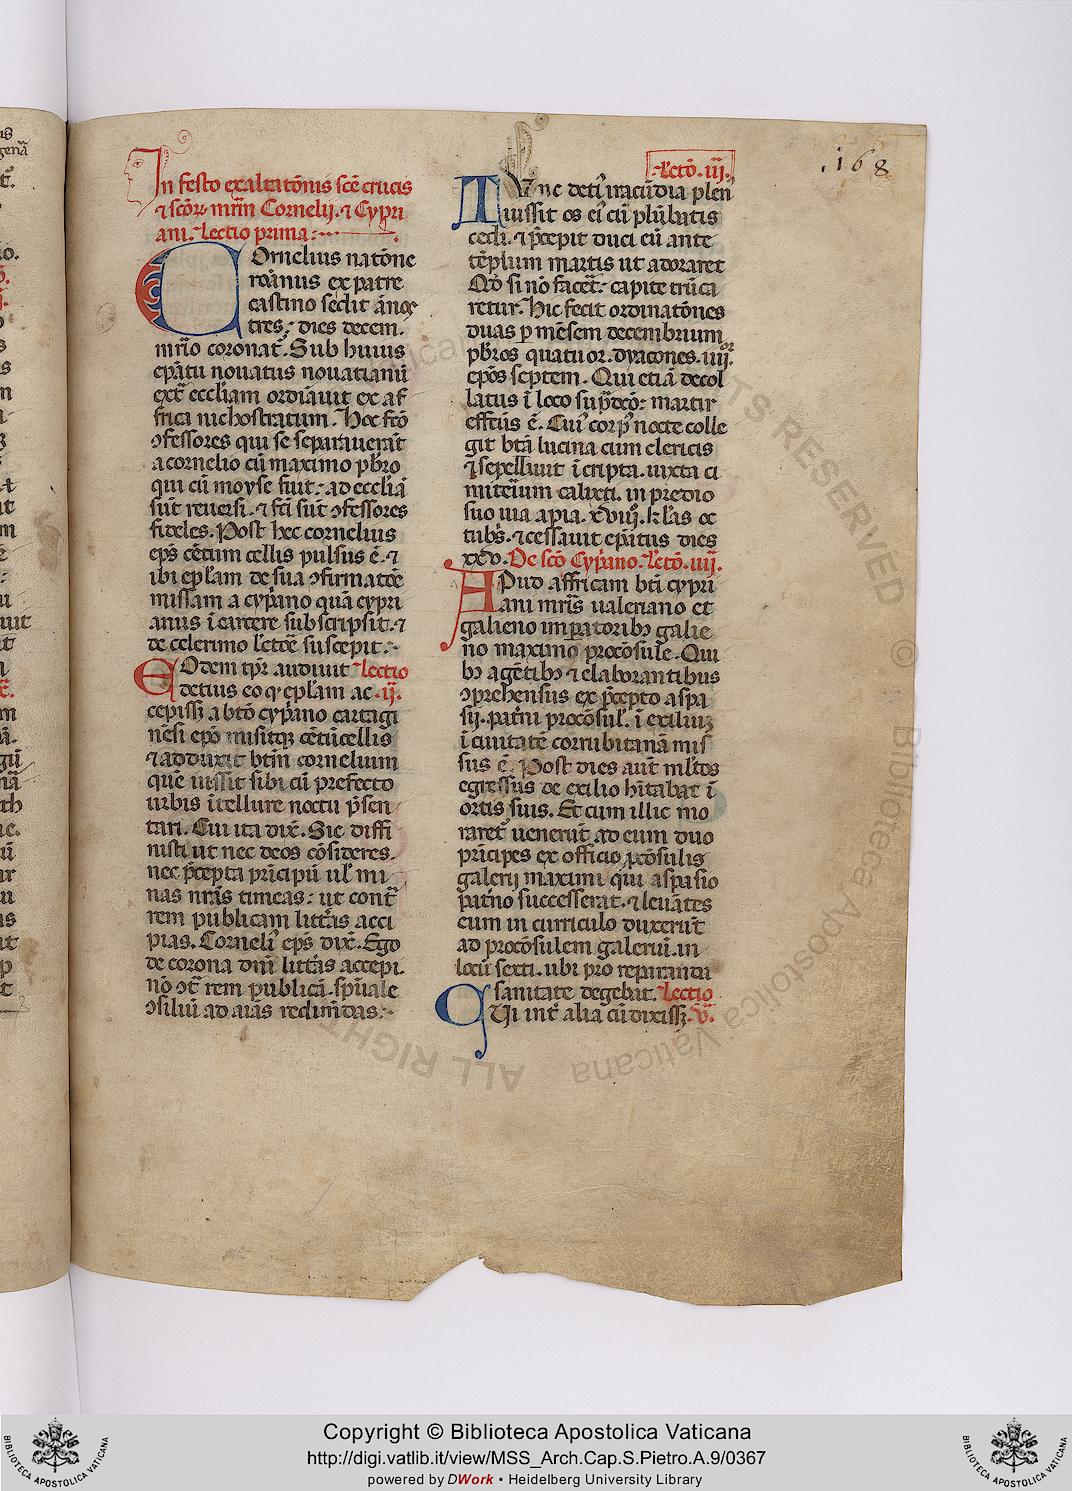 .i68
In festo exaltatōnis scē crucis
⁊ scōꝝ mr̄m Cornelij. ⁊ Cypri
ani. Lectio prima:
Cornelius natōne
roānus ex patre
castino sedit ānos
tres: dies decem.
mr̄io coronat᷑. Sub huius
epātu nouatus nouatianū
ext᷑ eccl̄iam ordīauit ex af
frica nichostratum. Hoc fcō
ↄfessores qui se separauerāt
a cornelio cū maximo p̄bro
qui cū moyse fuit: ad eccl̄iā
sūt reuersi. ⁊ fc̄i sūt ↄfessores
fideles. Post hec cornelius
ep̄s cētum cellis pulsus ē. ⁊
ibi ep̄lam de sua ↄfirmatōe
missam a cyp̄ano quā cypri
anus ī carcere subscripsit. ⁊
de celerino l̄ctōe suscepit:
Eodem tp̄r audiuit Lectio
detius eo q' ep̄lam ac .ij.
cepissꝫ a btō cyp̄ano cartagi
nēsi ep̄o misitqꝫ cētūcellis
⁊ adduxit btm̄ cornelium
quē iussit sibi cū prefecto
urbis ītellure noctu p̄sen
tari. Cui ita dix̄. Sic diffi
nisti ut nec deos cōsideres.
nec p̄cepta prīcipū ul̄ mi
nas nr̄as timeas: ut cont᷑
rem publicam litt̄as acci
pias. Corneli᷒ ep̄s dix̄. Ego
de corona dn̄i litt̄as accepi.
nō ↄt᷑ rem publicā. sp̄uale
ↄsiliū ad aīas redimēdas:
Lectō. iij.
Tunc deti᷒ iracūdia plen᷒
iussit os ei᷒ cū plūbatis
cedi. ⁊ p̄cepit duci eū ante
tēplum martis ut adoraret
Qd̄ si nō facet᷑: capite trūca
retur. Hic fecit ordinatōnes
duas ꝑ mēsem decembrium
p̄bros quatuor. dyacones. iiij.or
ep̄os septem. Qui etiā decol
latus ī loco sup̄dcō: martir
effctūs ē. Cui᷒ corp᷒ nocte colle
git btā lucina cum clericis
⁊ sepelliuit ī cripta. iuxta ci
miteīum calixti. in predio
suo uia apia. xviij. kl̄as oc
tubr̄. ⁊ cessauit ep̄atus dies
xxv. De scō Cyp̄ano. Lectō. iiij.
Apud affricam bti cypri
ani mr̄is ualeriano et
galieno imꝑatoribꝫ galie
no maximo procōsule. Qui
bꝫ agētibꝫ ⁊ elaborantibus
ↄprehensus ex p̄cepto aspa
sij. pat̄ni procōsul᷒. ī exiliuꝫ
ī ciuitatē corrubitanā mis
sus ē. Post dies aūt ml̄tos
egressus de exilio hītabat ī
ortis suis. Et cum illic mo
raret᷑ uenerūt ad eum duo
prīcipes ex officio ꝓcōsulis
galerij maximi qui aspasio
pat̄no successerat. ⁊ leuātes
eum in curriculo duxerūt
ad procōsulem galeriū. in
locū sexti. ubi pro repiranda
sanitate degebat. Lectio
Qui int᷑ alia cū dixissꝫ. v.
ALL RIGHTS RESERVED © Biblioteca Apostolica Vaticana
BIBLIOTECA APOSTOLICA VATICANA
Copyright © Biblioteca Apostolica Vaticana
http://digi.vatlib.it/view/MSS_Arch.Cap.S.Pietro.A.9/0367
powered by DWork • Heidelberg University Library
BIBLIOTECA APOSTOLICA VATICANA